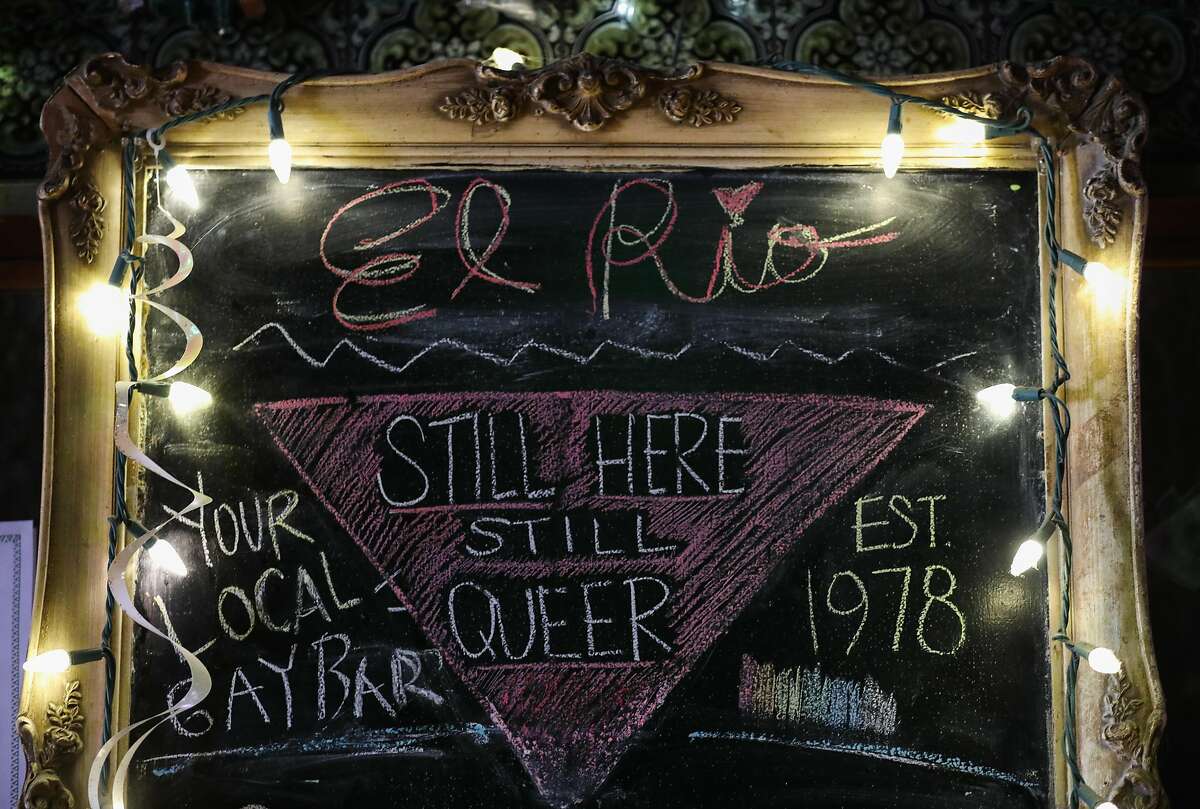 El Rio
STILL HERE
STILL
QUEER
YOUR
LOCAL
GAY BAR
EST.
1978